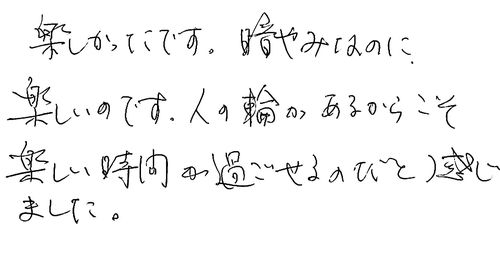 楽しかったです。暗やみなのに
楽しいのです。人の輪があるからこそ
楽しい時間が過ごせるのだと感じ
ました。